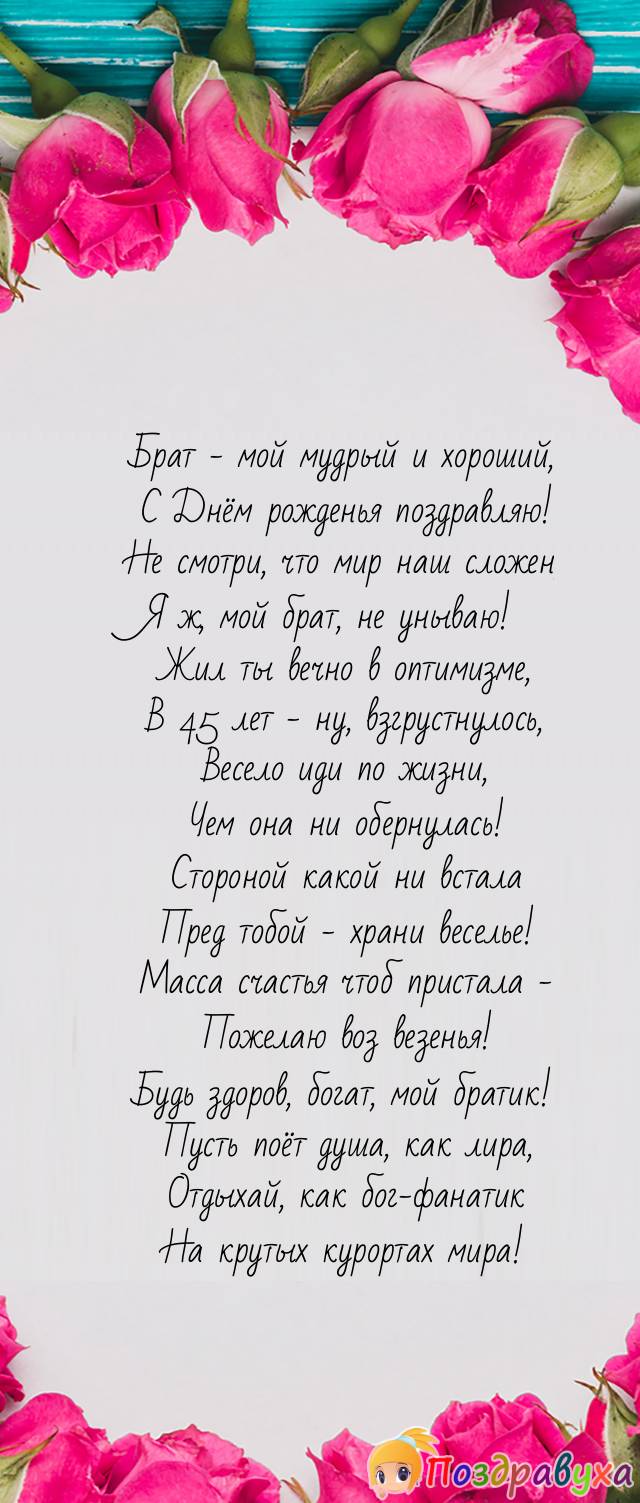 Брат - мой мудрый и хороший,
С Днём рожденья поздравляю!
Не смотри, что мир наш сложен
Я ж, мой брат, не унываю!
Жил ты вечно в оптимизме,
В 45 лет - ну, взгрустнулось,
Весело иди по жизни,
Чем она ни обернулась!
Стороной какой ни встала
Пред тобой - храни веселье!
Масса счастья чтоб пристала -
Пожелаю воз везенья!
Будь здоров, богат, мой братик!
Пусть поёт душа, как лира,
Отдыхай, как бог-фанатик
На крутых курортах мира!
Поздравуха